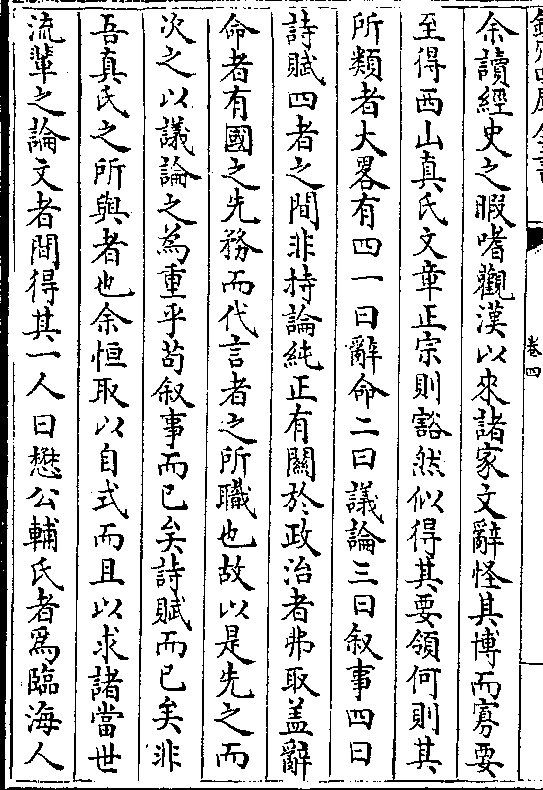 欽定四庫全書
卷四
余讀經史之暇嗜觀漢以來諸家文辭怪其博而寡要
至得西山真氏文章正宗則豁然似得其要領何則其
所類者大畧有四一曰辭命二曰議論三曰叙事四曰
詩賦四者之間非持論純正有關於政治者弗取盖辭
命者有國之先務而代言者之所職也故以是先之而
次之以議論之為重乎苟叙事而已矣詩賦而已矣非
吾真氏之所與者也余恒取以自式而且以求諸當世
流輩之論文者間得其一人曰懋公輔氏者爲臨海人